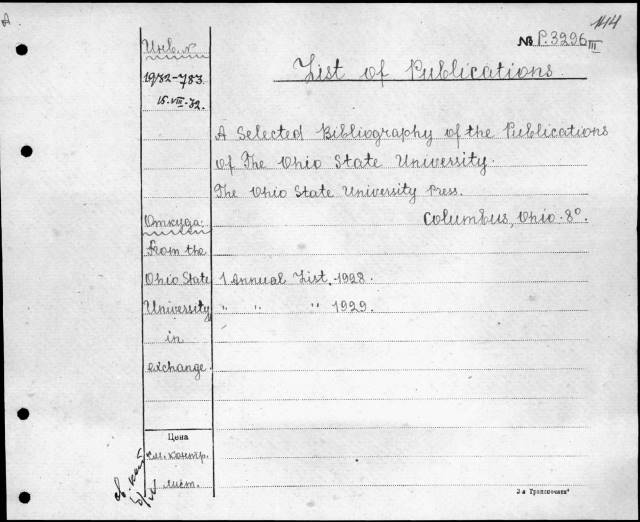 A.
144
№ P.3296 III
List of Publications
Инв. №
1932-783
15.VIII-32.
A Selected Bibliography of the Publications
of The Ohio State University.
The Ohio State University Press.
Columbus, Ohio. 8°.
Откуда:
From the
Ohio State
University
in
exchange.
1 Annual List. 1928.
" " " 1929.
Цена
см. контр.
лист.
2-я Транспечать